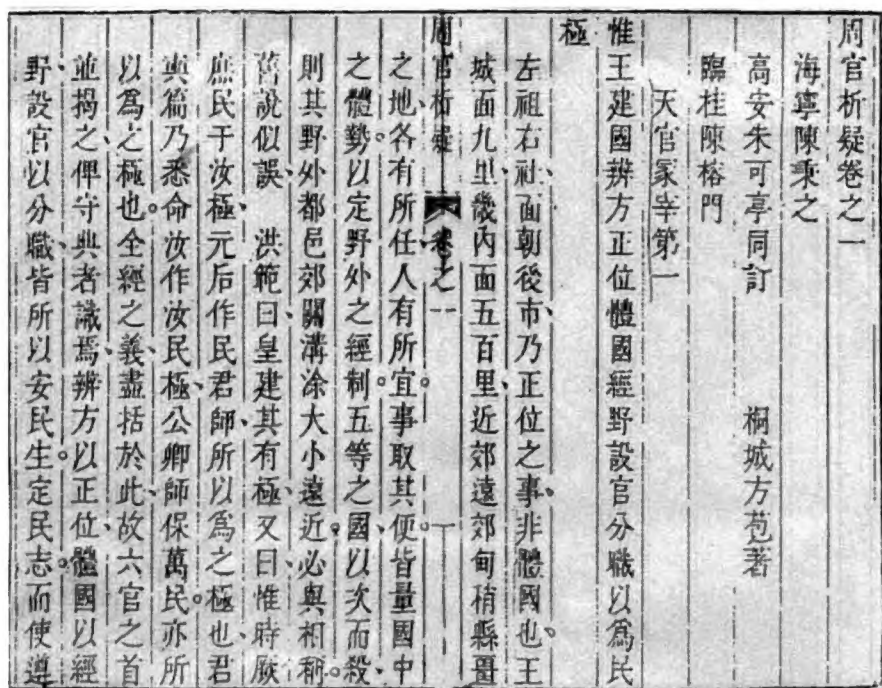 周官析疑卷之一
海寧陳秉之
高安朱可亭同訂 桐城方苞著
臨桂陳榕門
天官冢宰第一
惟王建國辨方正位體國經野設官分職以爲民
極
左祖右社、面朝後市、乃正位之事、非體國也。王
城面九里、畿內面五百里、近郊遠郊甸稍縣畺
周官析疑 卷之一 一
之地、各有所任、人有所宜。事取其便。皆量國中
之體勢。以定野外之經制。五等之國、以次而殺、
則其野外都邑郊關溝涂大小遠近。必與相稱。
舊說似誤、 洪範曰、皇建其有極、又曰、惟時厥
庶民于汝極、元后作民君師、所以爲之極也、君
奭篇乃悉命汝作汝民極、公卿師保萬民。亦所
以爲之極也。全經之義、盡括於此、故六官之首
並揭之、俾守典者識焉、辨方以正位、體國以經
野、設官以分職、皆所以安民生。定民志。而使遵